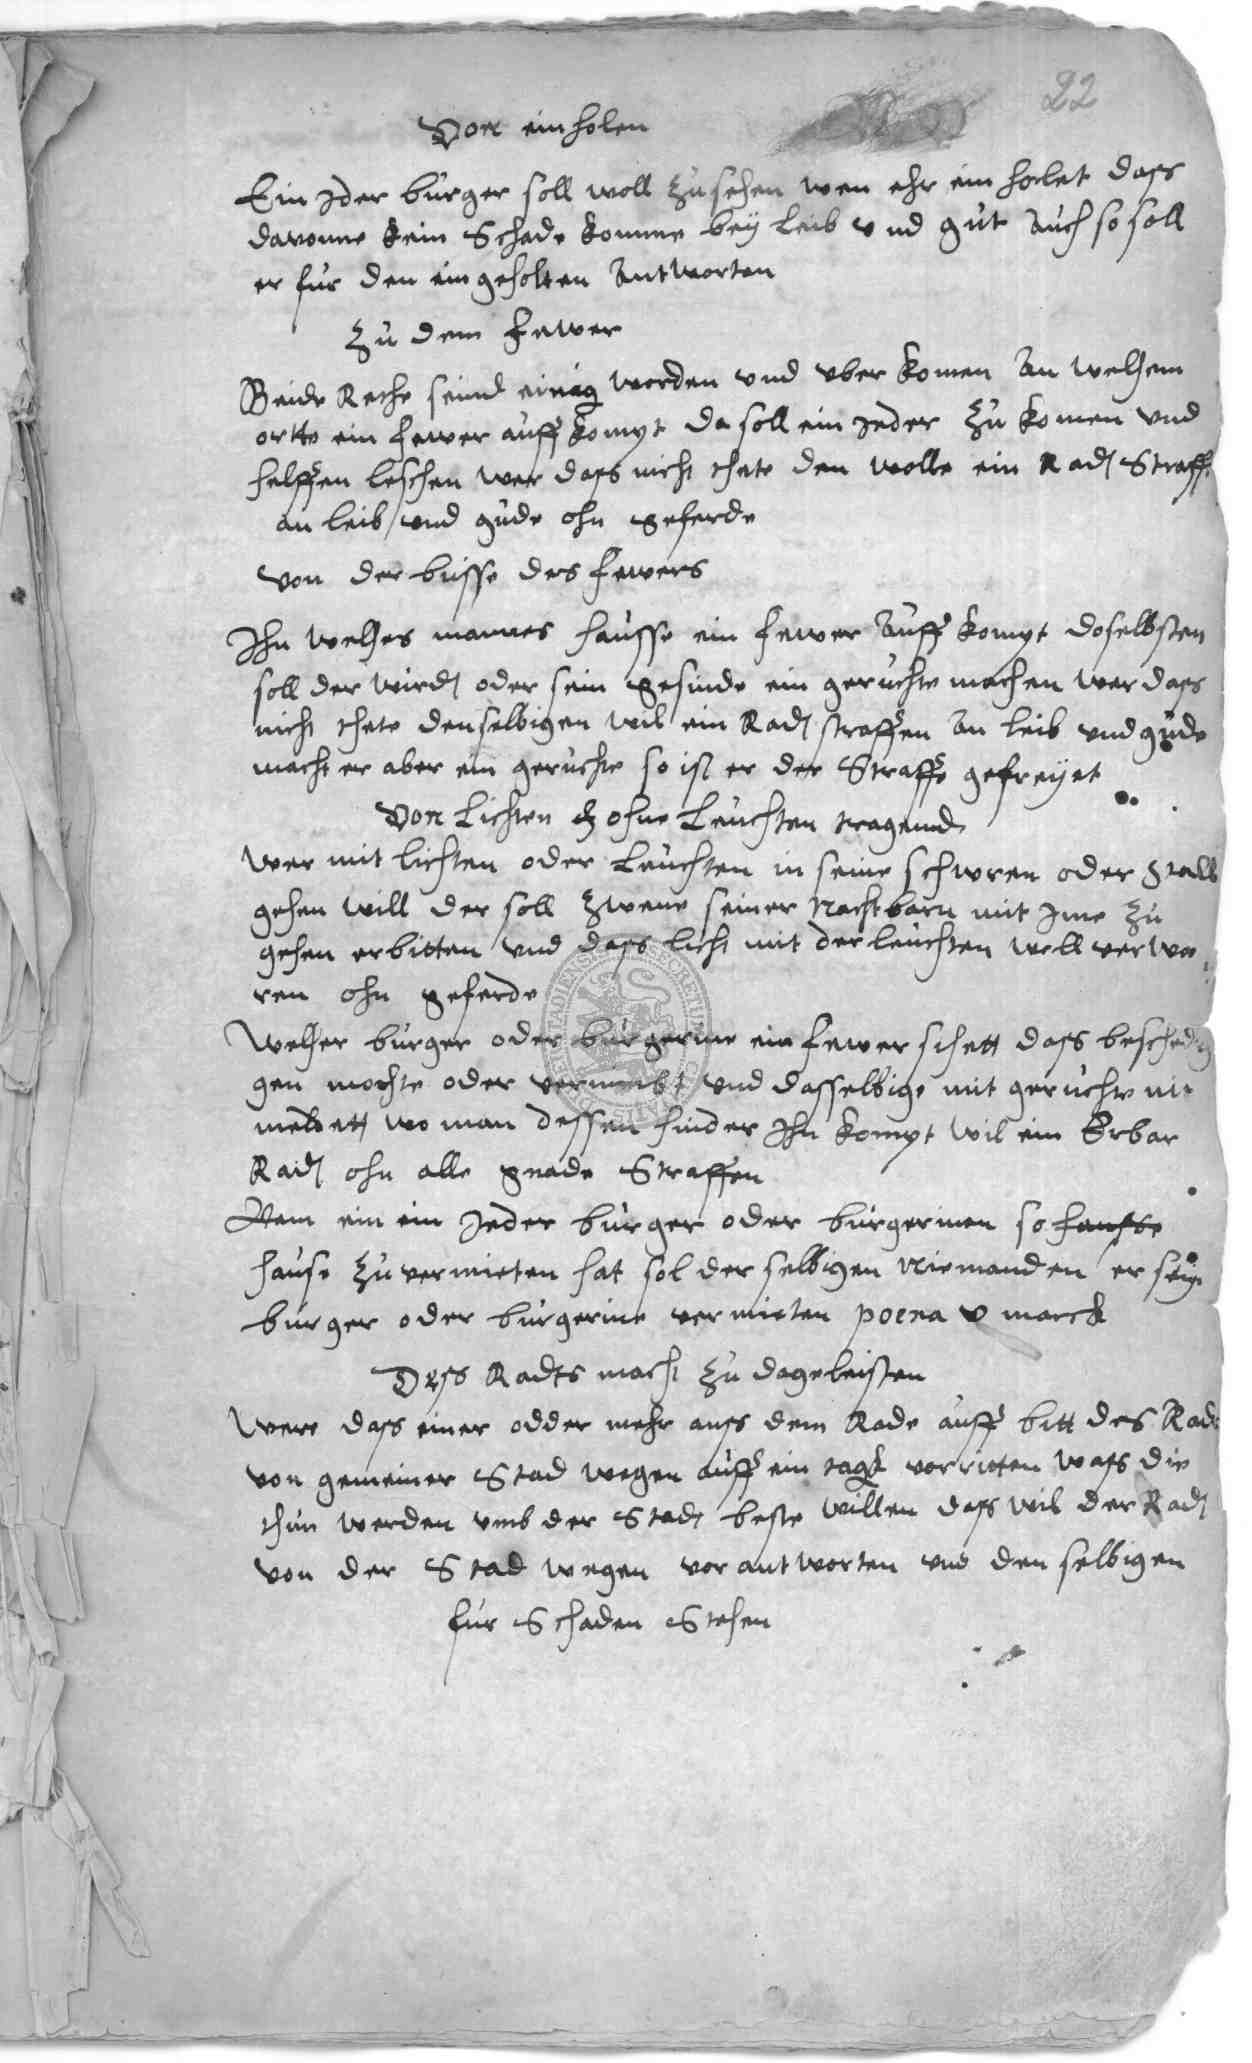 22
Von einholen
Ein Jder burger soll woll zusehen wen ehr ein holet dass
davonne kein Schade komme bey leib vnd gut Auch so soll
er fur den eingeholten Antworten
Zu dem Fewer
Beide Rethe seind einig worden vnd vber komen An welchem
ortte ein fewer auff kompt da soll ein Jeder zu komen vnd
helffen leschen wer dass nicht thete den wolle ein Radt Straffe
an leib vnd gude ohn geferde
von der busse des fewers
Ihn welches mannes hausse ein fewer Auff kompt doselbsten
soll der wirdt oder sein gesinde ein geruchte machen wer dass
nicht thete denselbigen wil ein Radt straffen An leib vnd gude
macht er aber ein geruchte so ist er der Straffe gefreyet
Von Lichten ohne Leuchten tragend
Wer mit lichten oder Leuchten in seine schwren oder Stall
gehen will der soll zwene seiner Nachtbarn mit Jme zu
gehen erbitten vnd dass licht mit der leuchten woll verwa
ren ohn geferde
Welcher burger oder burgerine ein fewer schett dass beschedi
gen mochte oder vernimbt vnd dasselbige mit geruchte nit
meldett wo man dessen hinder Ihn kompt wil ein Erbar
Radt ohn alle gnade Straffen
ein ein Jeder burger oder burgerinen so hausse
hause zu vermieten hat sol der selbigen Niemanden er sey
burger oder burgerine vermieten poena v marck
Dess Radts macht zu dageleisten
Were dass einer odder mehr auss dem Rade auff bitt des Rads
von gemeiner Stad wegen auff ein tagk vorritten wass die
thun werden vmb der Stadt beste willen dass wil der Radt
von der Stad wegen vorantworten vnd den selbigen
fur Schaden Stehen